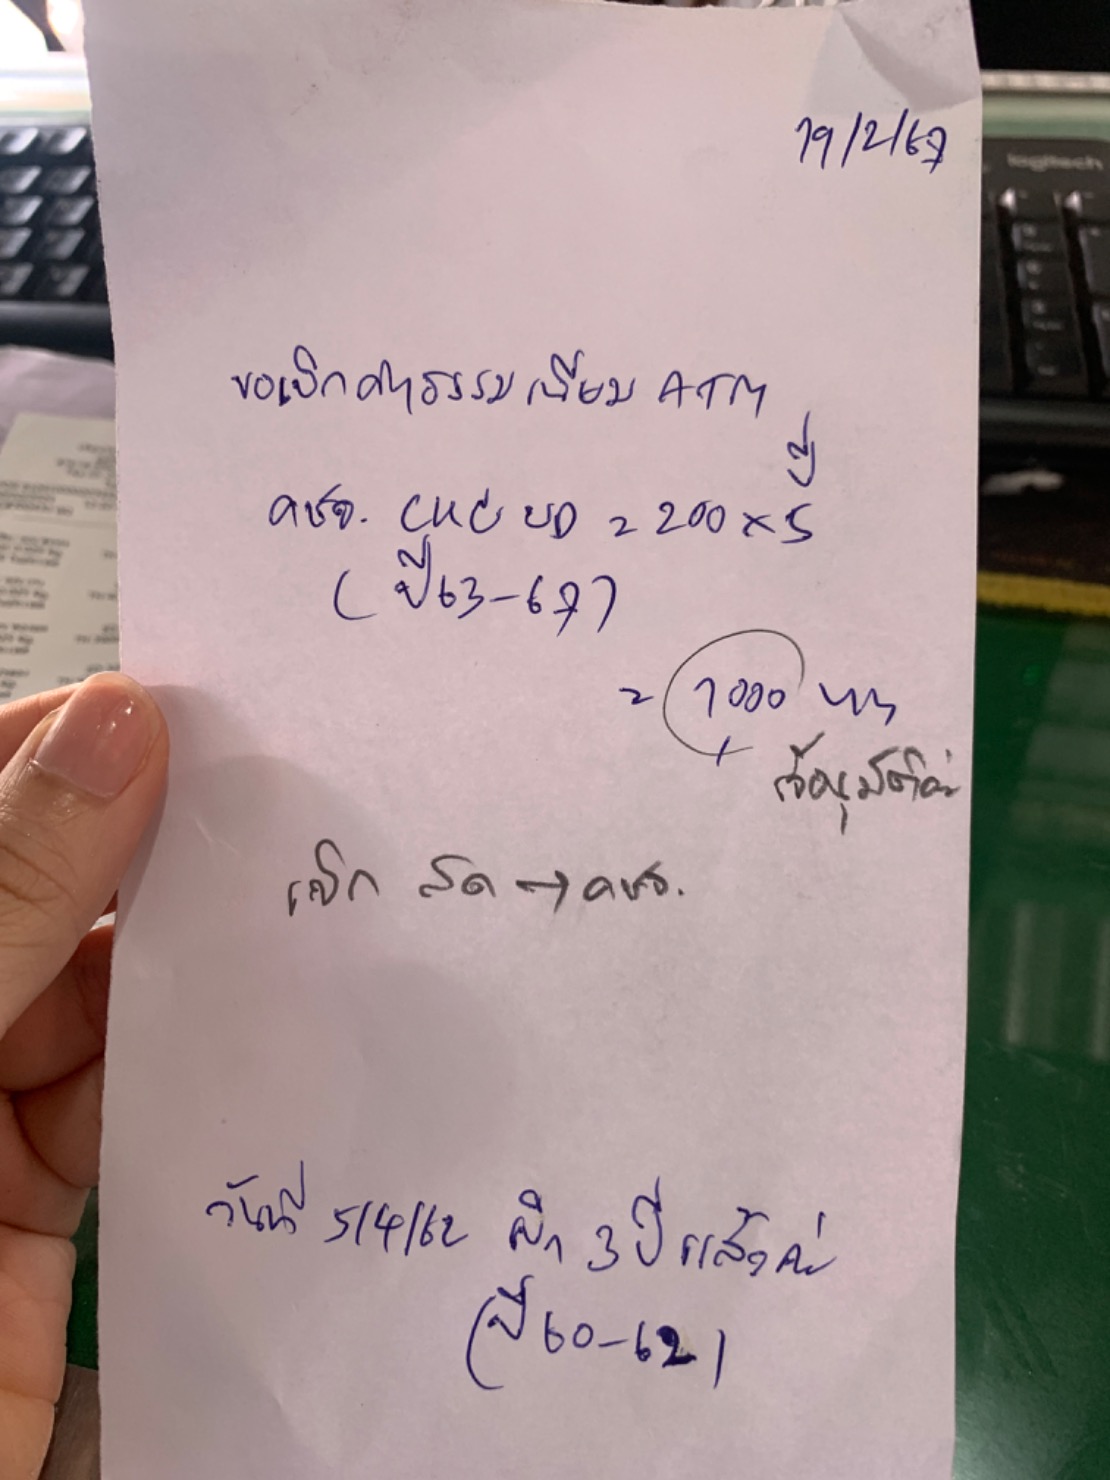 19/2/67
logitech
ขอเบิกค่าธรรมเนียม ATM
ปี
คชจ. = 200 x 5
(ปี 63-67)
= 1000 บาท
อนุมัติค่ะ
เบิก สด → คชจ.
วันที่ 5/4/62 เบิก 3 ปี แล้วค่ะ
(ปี 60-62)